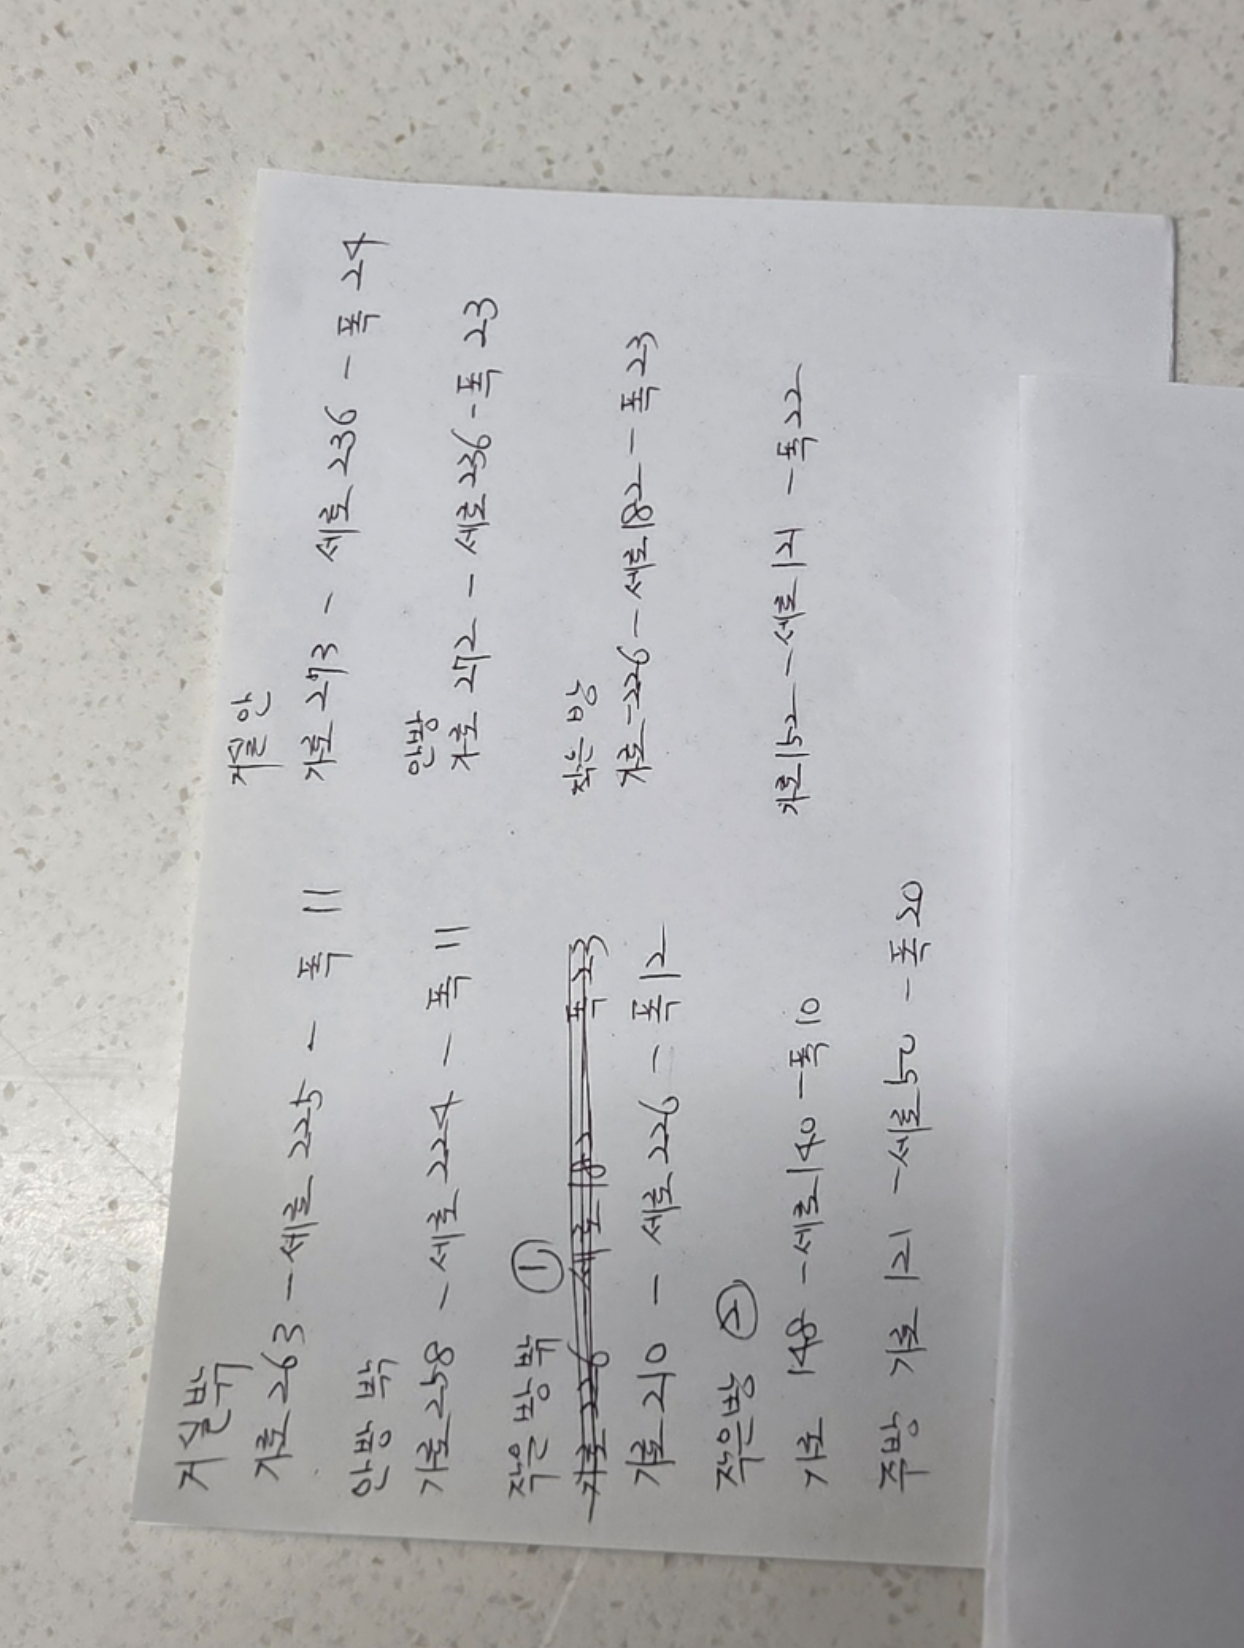 거실밖
가로 263 - 세로 225 - 폭 11
안방 밖
가로 258 - 세로 224 - 폭 11
작은 방 밖 ①
가로 226 세로 182 폭 23
가로 210 - 세로 226 - 폭 12
작은방 ②
가로 148 - 세로 140 - 폭 10
주방 가로 121 - 세로 50 - 폭 20
거실 안
가로 273 - 세로 236 - 폭 24
안방
가로 272 - 세로 236 - 폭 23
작은 방
가로 - 226 - 세로 182 - 폭 23
가로 152 - 세로 121 - 폭 22